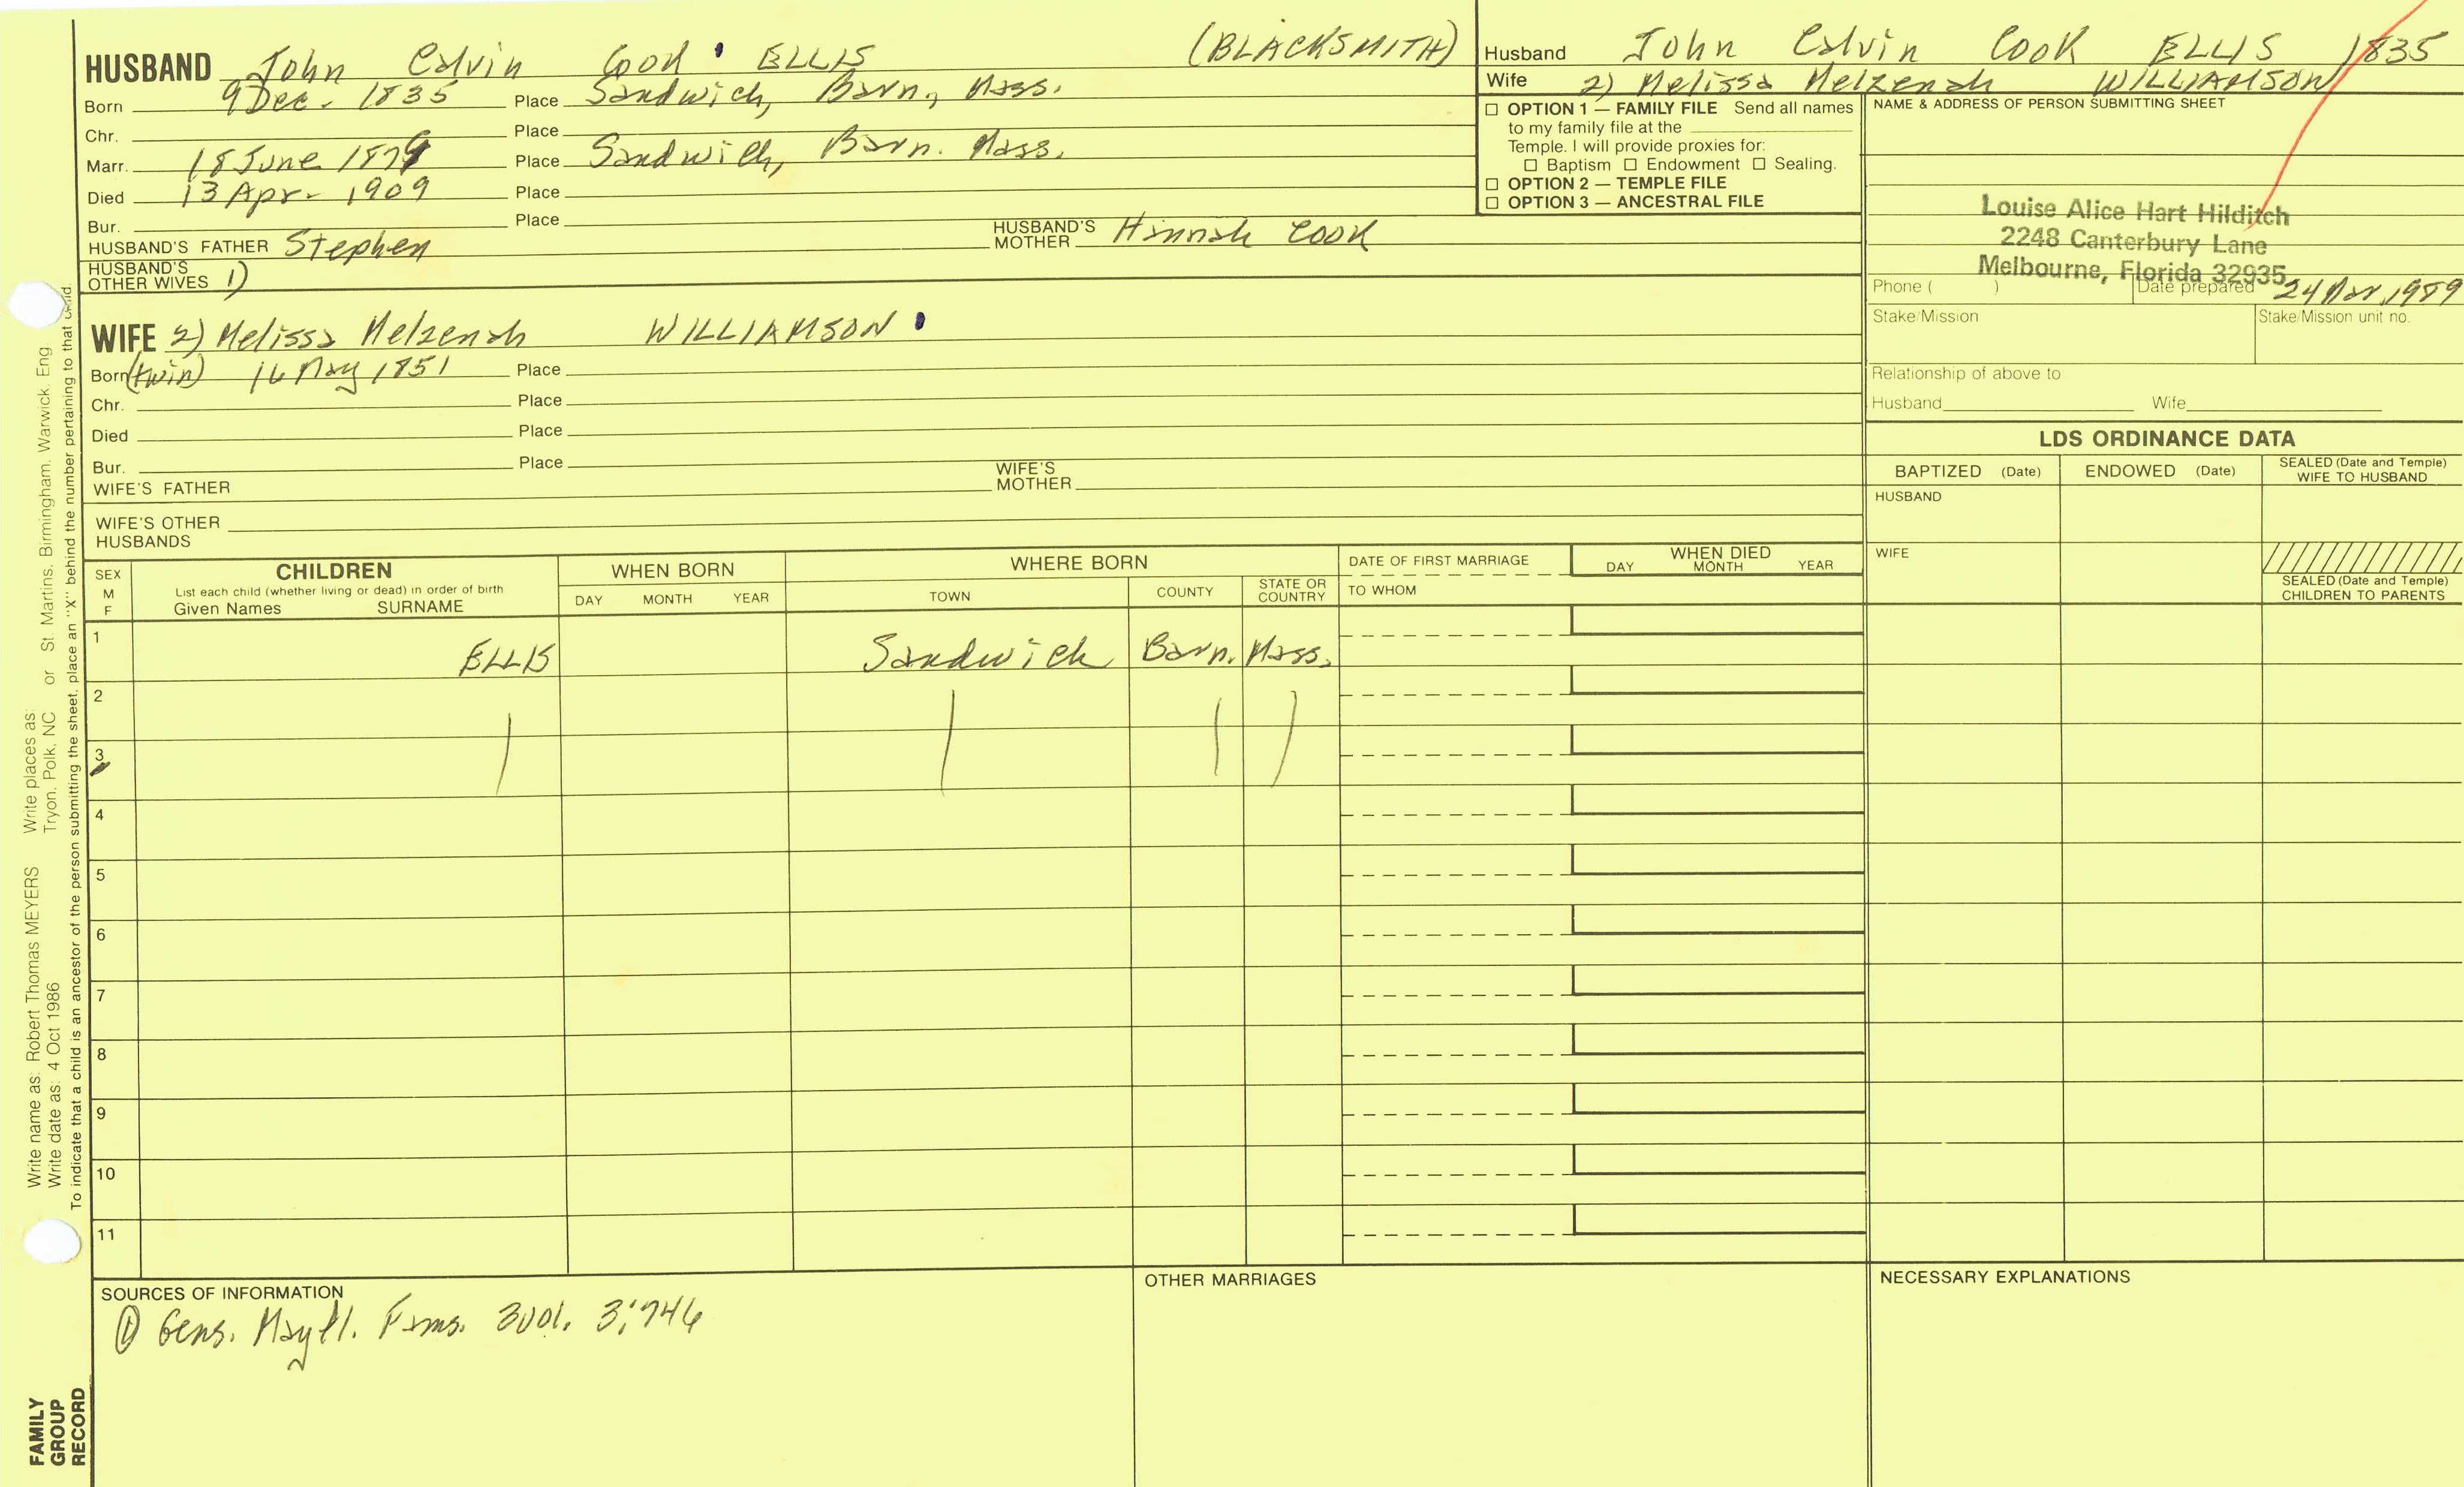 HUSBAND John Calvin Cook ELLIS (BLACKSMITH)
Born 9 Dec. 1835 Place Sandwich, Barn, Mass.
Chr. Place
Marr. 18 June 1879 Place Sandwich, Barn. Mass.
Died 13 Apr. 1909 Place
Bur. Place
HUSBAND'S FATHER Stephen HUSBAND'S MOTHER Hannah COOK
HUSBAND'S OTHER WIVES 1)
WIFE 2) Melissa Melzenah WILLIAMSON
Born (twin) 16 May 1851 Place
Chr. Place
Died Place
Bur. Place
WIFE'S FATHER WIFE'S MOTHER
WIFE'S OTHER HUSBANDS
Husband John Calvin Cook ELLIS 1835
Wife 2) Melissa Melzenah WILLIAMSON
☐ OPTION 1 — FAMILY FILE Send all names
to my family file at the
Temple. I will provide proxies for:
☐ Baptism ☐ Endowment ☐ Sealing.
☐ OPTION 2 — TEMPLE FILE
☐ OPTION 3 — ANCESTRAL FILE
NAME & ADDRESS OF PERSON SUBMITTING SHEET
Louise Alice Hart Hilditch
2248 Canterbury Lane
Melbourne, Florida 32935
Phone ( ) Date prepared 24 Mar, 1989
Stake/Mission Stake/Mission unit no.
Relationship of above to
Husband Wife
LDS ORDINANCE DATA
BAPTIZED (Date) ENDOWED (Date) SEALED (Date and Temple) WIFE TO HUSBAND
HUSBAND
WIFE
SEALED (Date and Temple) CHILDREN TO PARENTS
SEX M F
CHILDREN
List each child (whether living or dead) in order of birth
Given Names SURNAME
WHEN BORN
DAY MONTH YEAR
WHERE BORN
TOWN COUNTY STATE OR COUNTRY
DATE OF FIRST MARRIAGE
TO WHOM
WHEN DIED
DAY MONTH YEAR
1 ELLIS Sandwich Barn. Mass.
2
3
4
5
6
7
8
9
10
11
SOURCES OF INFORMATION
① Gens. Mayfl. Fams. 3vol. 3:746
OTHER MARRIAGES
NECESSARY EXPLANATIONS
Write name as: Robert Thomas MEYERS Write places as: 
Write date as: 4 Oct 1986 Tryon, Polk, NC or St. Martins, Birmingham, Warwick, Eng
To indicate that a child is an ancestor of the person submitting the sheet, place an "X" behind the number pertaining to that child
FAMILY
GROUP
RECORD